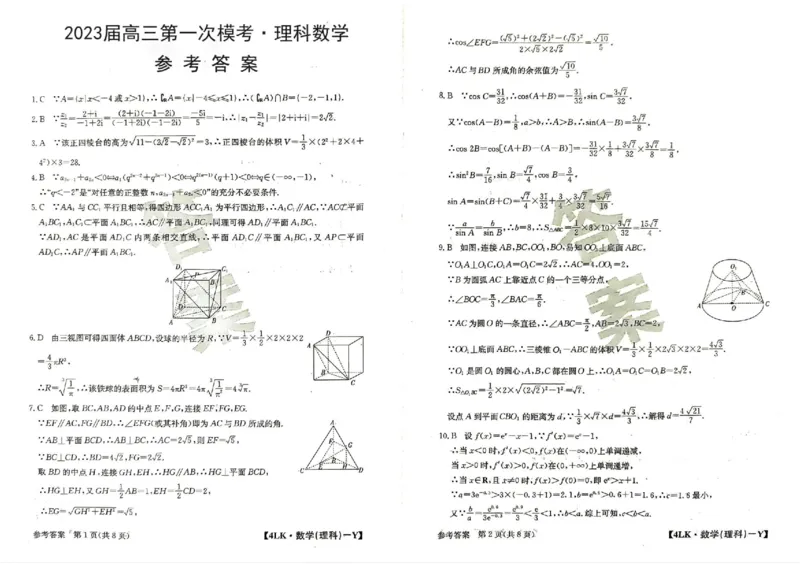 2023届高三第一次模考·理科数学
参考答案
1.C ∵A={x|x<-4或x>1},∴∁RA={x|-4≤x≤1},∴(∁RA)∩B={-2,-1,1}.
2.B ∵z₁/z₂=(2+i)/(-1+2i)=(2+i)(-1-2i)/((-1+2i)(-1-2i))=-5i/5=-i,∴|z₁-z₁/z₂|=|2+i+i|=2√2.
3.A ∵该正四棱台的高为√(11-(3√2-√2)²)=3,∴正四棱台的体积V=1/3×(2²+2×4+
4²)×3=28.
4.B
∴"q<-2"是"对任意的正整数n,a₂ₙ₋₁+a₂ₙ≤0"的充分不必要条件.
5.C ∵AA₁与CC₁平行且相等,得四边形ACC₁A₁为平行四边形,∴A₁C₁∥AC,∵AC⊄平面
A₁BC₁,A₁C₁⊂平面A₁BC₁,∴AC∥平面A₁BC₁,同理可得AD₁∥平面A₁BC₁.
∵AD₁,AC是平面AD₁C内两条相交直线,∴平面AD₁C∥平面A₁BC₁,又AP⊂平面
AD₁C,∴AP∥平面A₁BC₁.
D₁ C₁
P
A₁ B₁
D C
A B
6.D 由三视图可得四面体ABCD,设球的半径为R,∵V=1/3×1/2×2×2×2
=4/3πR³,
∴R=∛(1/π),∴该铁球的表面积为S=4πR²=4π∛(1/π²)=4∛π.
D
A
B C
7.C 如图,取BC,AB,AD的中点E,F,G,连接EF,FG,EG.
∵EF∥AC,FG∥BD,∴∠EFG(或其补角)即为AC与BD所成的角.
∵AB⊥平面BCD,∴AB⊥BC,∴AC=2√5,则EF=√5,
∵BC⊥CD,∴BD=4√2,FG=2√2.
取BD的中点H,连接GH,EH,∴HG∥AB,∴HG⊥平面BCD,
∴HG⊥EH,又GH=1/2AB=1,EH=1/2CD=2,
∴EG=√(GH²+EH²)=√5,
A
F G
B H D
E
C
参考答案 第1页(共8页)
【4LK·数学(理科)-Y】
∴cos∠EFG=((√5)²+(2√2)²-(√5)²)/(2×√5×2√2)=√10/5.
∴AC与BD所成角的余弦值为√10/5.
8.B ∵cos C=31/32,∴cos(A+B)=-31/32,sin C=3√7/32,
又∵cos(A-B)=1/8,a>b,∴A>B,∴sin(A-B)=3√7/8,
∴cos 2B=cos[(A+B)-(A-B)]=-31/32×1/8+3√7/32×3√7/8=1/8,
∴sin²B=7/16,sin B=√7/4,cos B=3/4,
sin A=sin(B+C)=√7/4×31/32+3/4×3√7/32=5√7/16.
∵a/sin A=b/sin B,∴b=8,∴S△ABC=1/2×8×10×3√7/32=15√7/4.
9.B 如图,连接AB,BC,OO₁,BO,易知OO₁⊥底面ABC,
∵O₁A⊥O₁C,O₁A=O₁C=2√2,∴AC=4,OO₁=2,
∵B为圆弧AC上靠近点C的一个三等分点,
∴∠BOC=π/3,∠BAC=π/6.
∵AC为圆O的一条直径,∴∠ABC=π/2,AB=2√3,BC=2,
∵OO₁⊥底面ABC,∴三棱锥O₁-ABC的体积V=1/3×1/2×2√3×2×2=4√3/3.
∵O₁是圆O₁的圆心,A,B,C都在圆O上,∴O₁A=O₁C=O₁B=2√2,
∴S△O₁BC=1/2×2×√((2√2)²-1²)=√7.
设点A到平面CBO₁的距离为d,∵1/3×√7×d=4√3/3,∴解得d=4√21/7.
O₁
B
A O C
10.B 设f(x)=eˣ-x-1,∵f′(x)=eˣ-1,
∴当x<0时,f′(x)<0,f(x)在(-∞,0)上单调递减,
当x>0时,f′(x)>0,f(x)在(0,+∞)上单调递增,
∴当x∈R,且x≠0时,f(x)>f(0)=0,即eˣ>x+1.
∵a=3e⁻⁰·³>3×(-0.3+1)=2.1,b=e⁰·⁶>0.6+1=1.6,∴c=1.6最小,
又∵b/a=e⁰·⁶/3e⁻⁰·³=e⁰·⁹/3<e/3<1,∴b<a.综上可知,c<b<a.
参考答案 第2页(共8页)
【4LK·数学(理科)-Y】
答案
答案